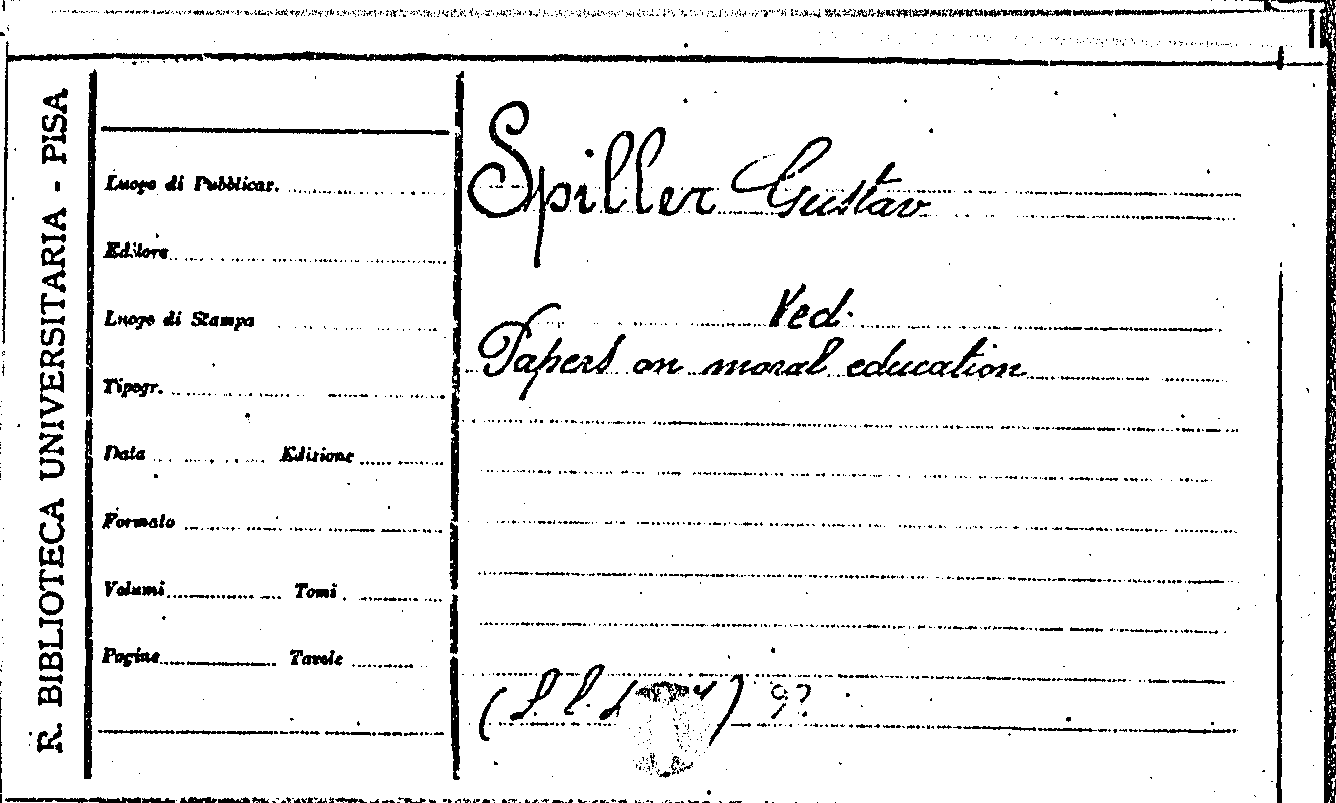 R. BIBLIOTECA UNIVERSITARIA - PISA
Luogo di Pubblicaz.
Editore
Luogo di Stampa
Tipogr.
Data Edizione
Formato
Volumi Tomi
Pagine Tavole
Spiller Gustav
Ved.
Papers on moral education